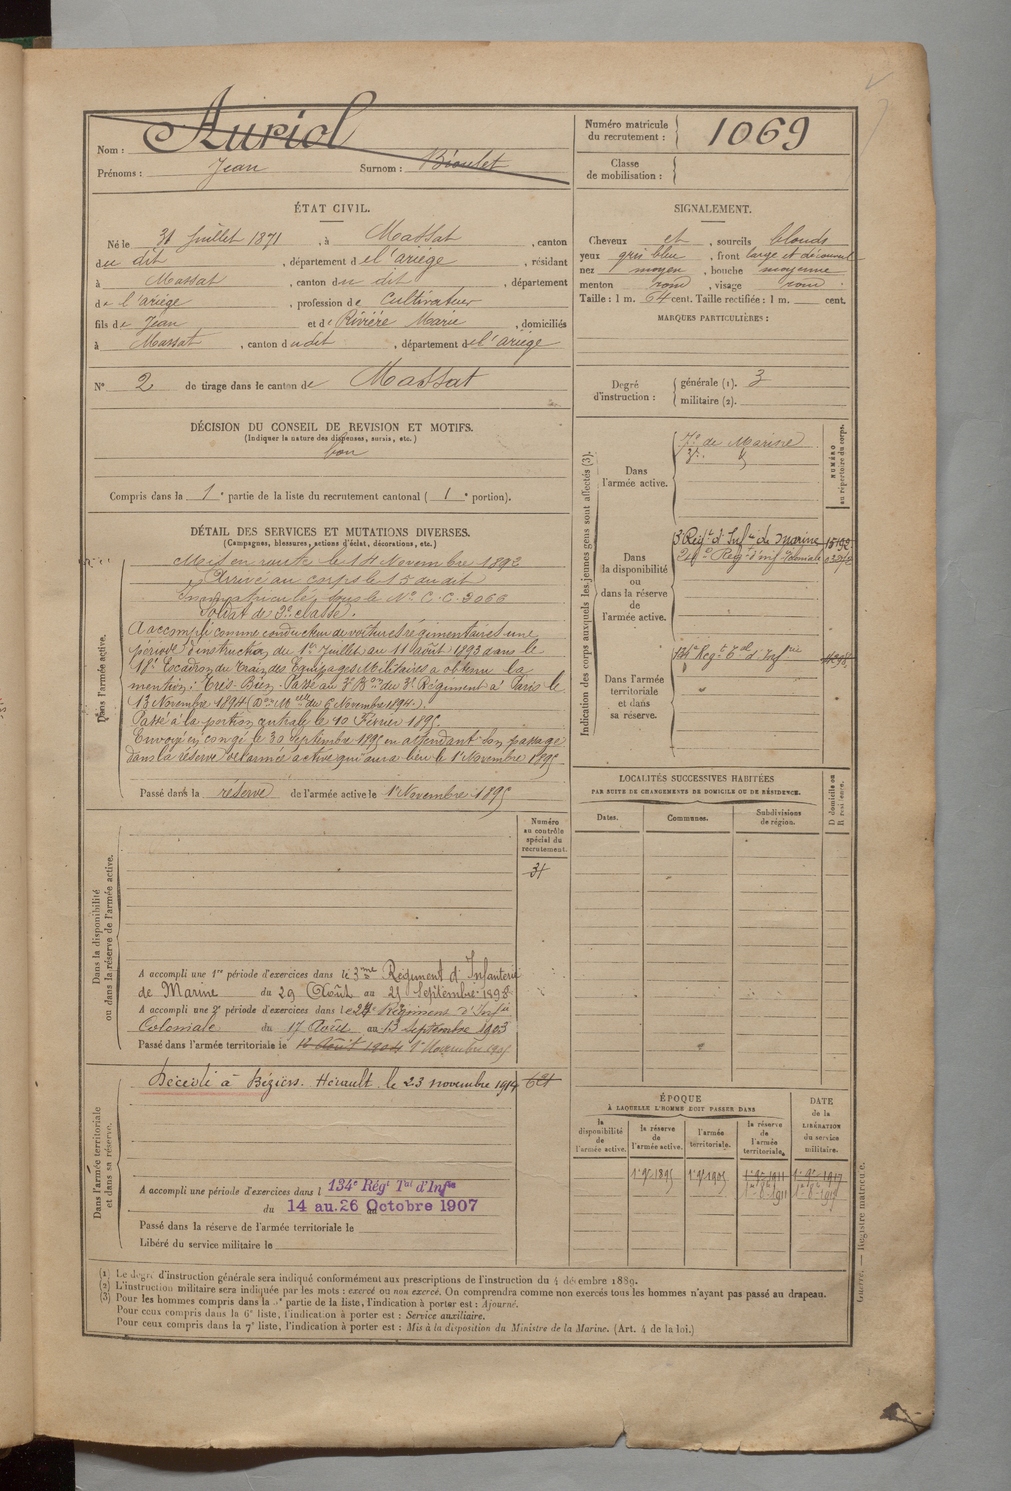 Nom : Auriol
Prénoms : Jean Surnom : Bioulet
Numéro matricule du recrutement : 1069
Classe de mobilisation :
ÉTAT CIVIL.
Né le 31 Juillet 1871, à Massat, canton
du dit, département de l'ariège, résidant
à Massat, canton du dit, département
de l'ariège, profession de Cultivateur
fils de Jean et de Rivière Marie, domiciliés
à Massat, canton du dit, département de l'ariège
N° 2 de tirage dans le canton de Massat
SIGNALEMENT.
Cheveux et, sourcils blonds
yeux gris bleu, front large et découvert
nez moyen, bouche moyenne
menton rond, visage rond.
Taille : 1 m. 64 cent. Taille rectifiée : 1 m. cent.
MARQUES PARTICULIÈRES :
Degré d'instruction :
générale (1). 3
militaire (2).
DÉCISION DU CONSEIL DE REVISION ET MOTIFS.
(Indiquer la nature des dispenses, sursis, etc.)
bon
Compris dans la 1e partie de la liste du recrutement cantonal ( 1e portion).
DÉTAIL DES SERVICES ET MUTATIONS DIVERSES.
(Campagnes, blessures, actions d'éclat, décorations, etc.)
Dans l'armée active.
Mis en route le 14 Novembre 1892
Arrivé au corps le 15 du dit
Immatriculé sous le N° C.C. 3066
Soldat de 2e classe.
A accompli comme conducteur de voitures régimentaires une
période d'instruction du 1er Juillet au 11 août 1893 dans le
18e Escadron du Train des Equipages Militaires a obtenu la
mention : Très-Bien. Passé au 3e Bon du 3e Régiment à Paris le
13 Novembre 1894 (Don Melle du 6 Novembre 1894.).
Passé à la portion centrale le 10 Février 1895.
Envoyé en congé le 30 septembre 1895 en attendant son passage
dans la réserve de l'armée active qui aura lieu le 1er Novembre 1895
Passé dans la réserve de l'armée active le 1er Novembre 1895
Indication des corps auxquels les jeunes gens sont affectés (3).
NUMÉRO au répertoire du corps.
Dans l'armée active.
de Marine
Dans la disponibilité ou dans la réserve de l'armée active.
3 Régt d'Infie de Marine 15192
Régt d'inf Coloniale
Dans l'armée territoriale et dans sa réserve.
134e Régt Tal d'Infie
LOCALITÉS SUCCESSIVES HABITÉES
PAR SUITE DE CHANGEMENTS DE DOMICILE OU DE RÉSIDENCE.
Dates. Communes. Subdivisions de région. D domicile ou R résidence.
Dans la disponibilité ou dans la réserve de l'armée active.
Numéro au contrôle spécial du recrutement.
31
A accompli une 1re période d'exercices dans le 3me Régiment d'Infanterie
de Marine du 29 Août au 25 Septembre 1898
A accompli une 2e période d'exercices dans le 24e Régiment d'Infie
Coloniale du 17 Août au 13 Septembre 1903
Passé dans l'armée territoriale le 12 Août 1904 1er Novembre 1905
Dans l'armée territoriale et dans sa réserve.
Décédé à Béziers. Hérault. le 23 novembre 1914
A accompli une période d'exercices dans l 134e Régt Tal d'Infie
du 14 au 26 Octobre 1907
Passé dans la réserve de l'armée territoriale le
Libéré du service militaire le
ÉPOQUE
À LAQUELLE L'HOMME DOIT PASSER DANS
la disponibilité de l'armée active. la réserve de l'armée active. l'armée territoriale. la réserve de l'armée territoriale.
DATE de la LIBÉRATION du service militaire.
1er 9bre 1895 1er 9bre 1905 1er 9bre 1911 1er 9bre 1917
(1) Le degré d'instruction générale sera indiqué conformément aux prescriptions de l'instruction du 4 décembre 1889.
(2) L'instruction militaire sera indiquée par les mots : exercé ou non exercé. On comprendra comme non exercés tous les hommes n'ayant pas passé au drapeau.
(3) Pour les hommes compris dans la 5e partie de la liste, l'indication à porter est : Ajourné.
Pour ceux compris dans la 6e liste, l'indication à porter est : Service auxiliaire.
Pour ceux compris dans la 7e liste, l'indication à porter est : Mis à la disposition du Ministre de la Marine. (Art. 4 de la loi.)
Guerre. — Registre matricule.